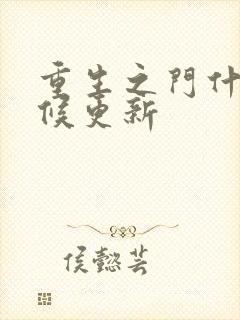 重生之門什
候更新
侯懿芸